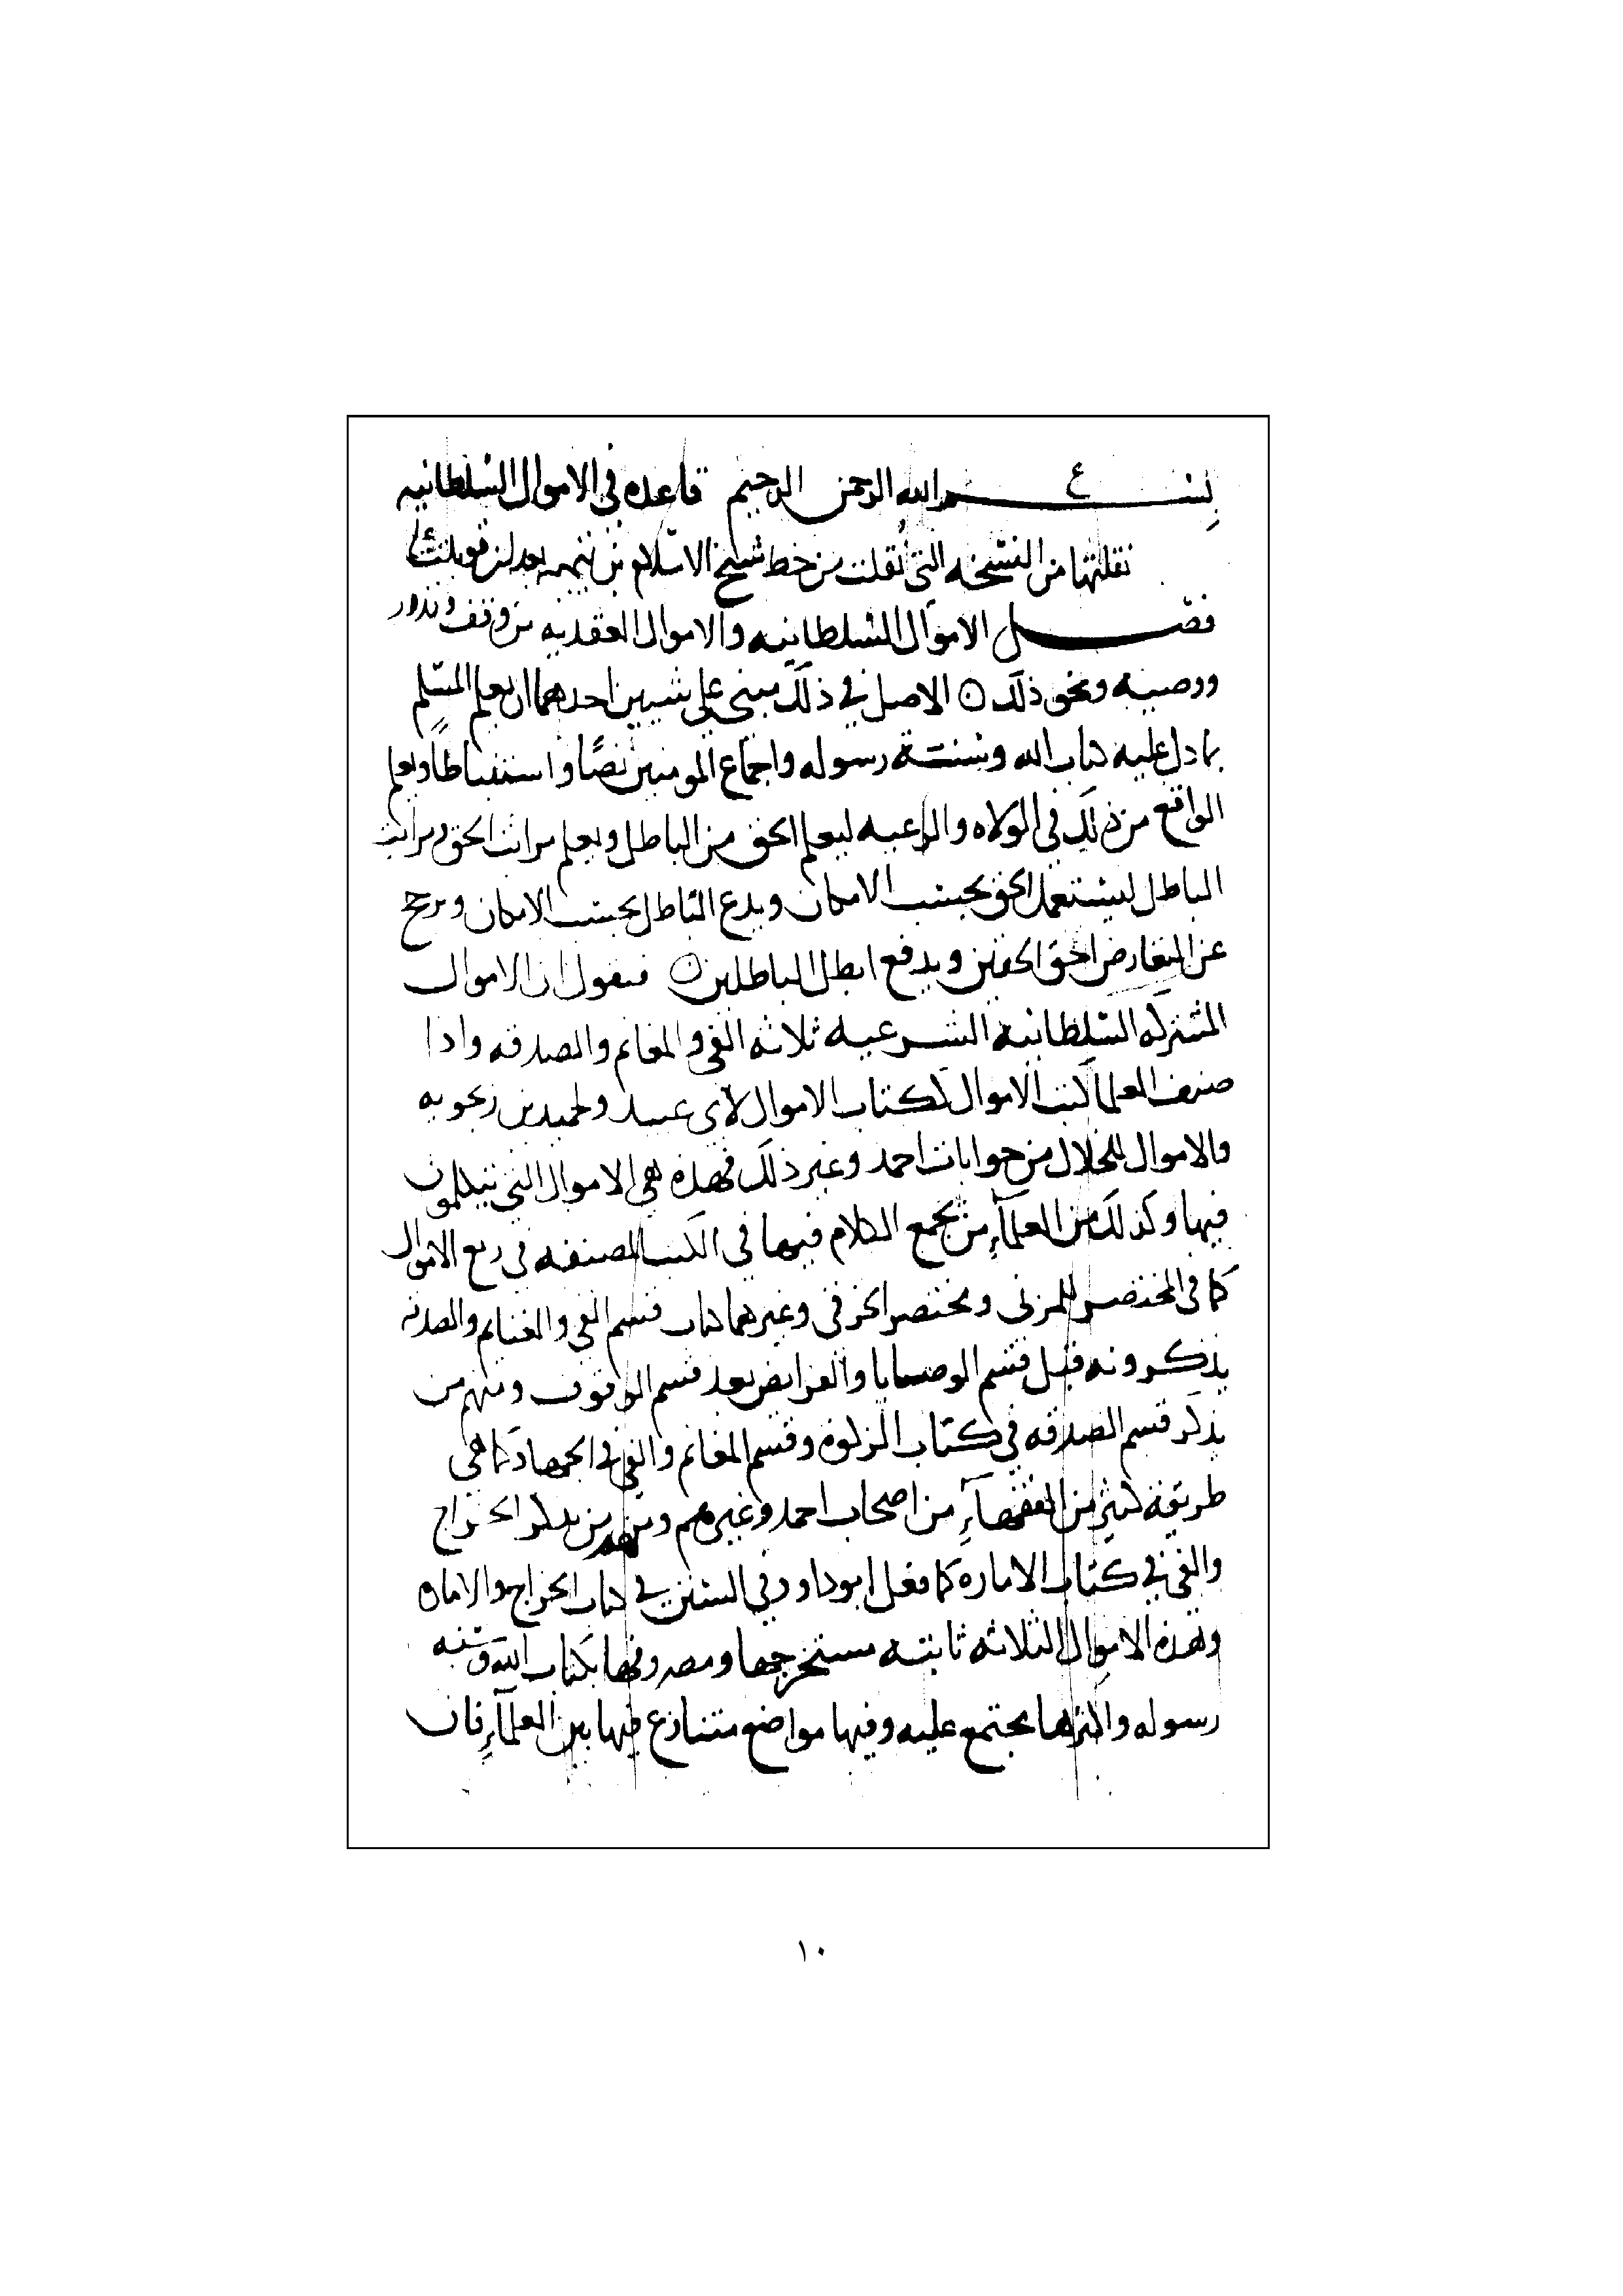 بسم الله الرحمن الرحيم قاعده في الاموال السلطانيه
نقلتها من النسخه التي نقلت من خط شيخ الاسلام بن تيميه بعد ان قوبلت
فصل الاموال السلطانيه والاموال العقديه من وقف ونذور
ووصيه ونحو ذلك ن الاصل في ذلك مبني على شيين احدهما ان يعلم المسلم
بما دل عليه كتاب الله وسنة رسوله واجماع المومنين نصًا واستنباطًا ويعلم
الواقع من ذلك في الولاه والرعيه ليعلم الحق من الباطل ويعلم مراتب الحق ومراتب
الباطل ليستعمل الحق بحسب الامكان ويدع الباطل بحسب الامكان ويرجح
عند التعارض احق الحقين ويدفع ابطل الباطلين ن فنقول ان الاموال
المشتركه السلطانيه الشرعيه ثلاثه الفي والمغانم والصدقه واذا
صنف العلما كتب الاموال ككتاب الاموال لابي عبيد ولحميد بن زنجويه
والاموال للخلال من جوابات احمد وغير ذلك فهذه هي الاموال التي يتكلمون
فيها وكذلك من العلمآءِ من يجمع الكلام فيها في الكتب المصنفه في ربع الاموال
كما في المختصر للمزني ومختصر الخرقي وغيرهما كتاب قسم الفي والغنايم والصدقه
يذكرونه قبل قسم الوصايا والفرايض بعد قسم الوقوف ومنهم من
يذكر قسم الصدقه في كتاب الزكوة وقسم المغانم والفي في الجهاد كما هي
طريقة كثير من الفقهآءِ من اصحاب احمد وغيرهم ومنهم من يذكر الخراج
والفي في كتاب الاماره كما فعل ابو داود في السنن في كتاب الخراج والاماره
وهذه الاموال الثلاثه ثابته مستخرجها ومصروفها بكتاب الله وسنه
رسوله واكثرها مجتمع عليه وفيها مواضع متنازع فيها بين العلمآءِ فان
١٠